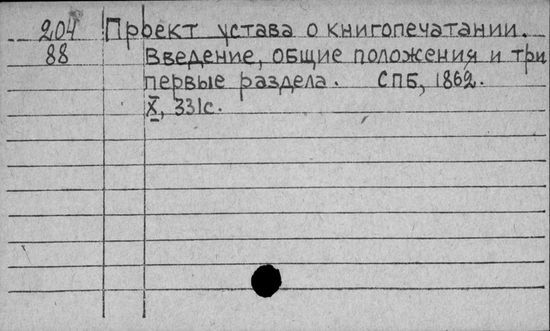 204 Проект устава о книгопечатании.
88 Введение, общие положения и три
первые раздела. СПБ, 1862.
X, 331с.